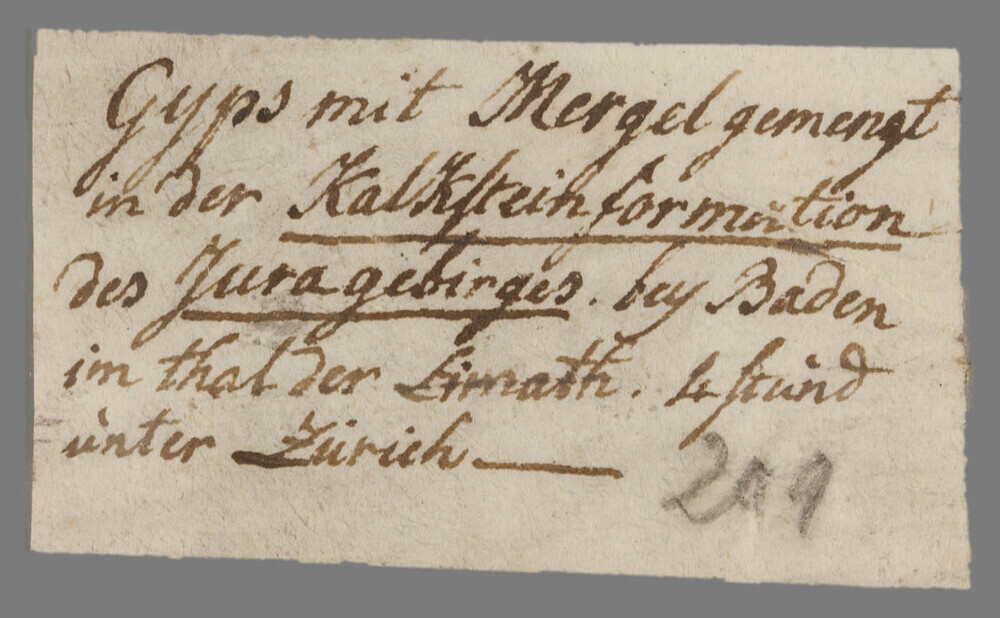 Gyps mit Mergel gemengt
in der Kalksteinformation
des Juragebirges. bey Baden
im thal der Limath. 4 stund
unter Zürich